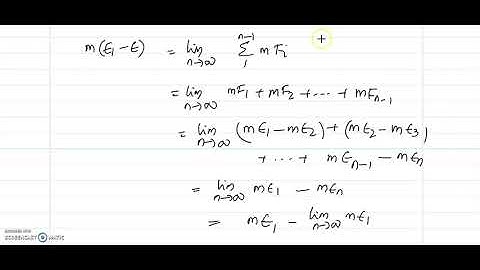 m(E₁-E) = lim n→∞ n-1 Σ 1 m Fi
= lim n→∞ mF₁ + mF₂ + ... + mFn-1
= lim n→∞ (mE₁-mE₂) + (mE₂-mE₃)
+ ... + mEn-1 - mEn
= lim n→∞ mE₁ - mEn
= mE₁ - lim n→∞ mE₁
RECORDED WITH
SCREENCAST MATIC